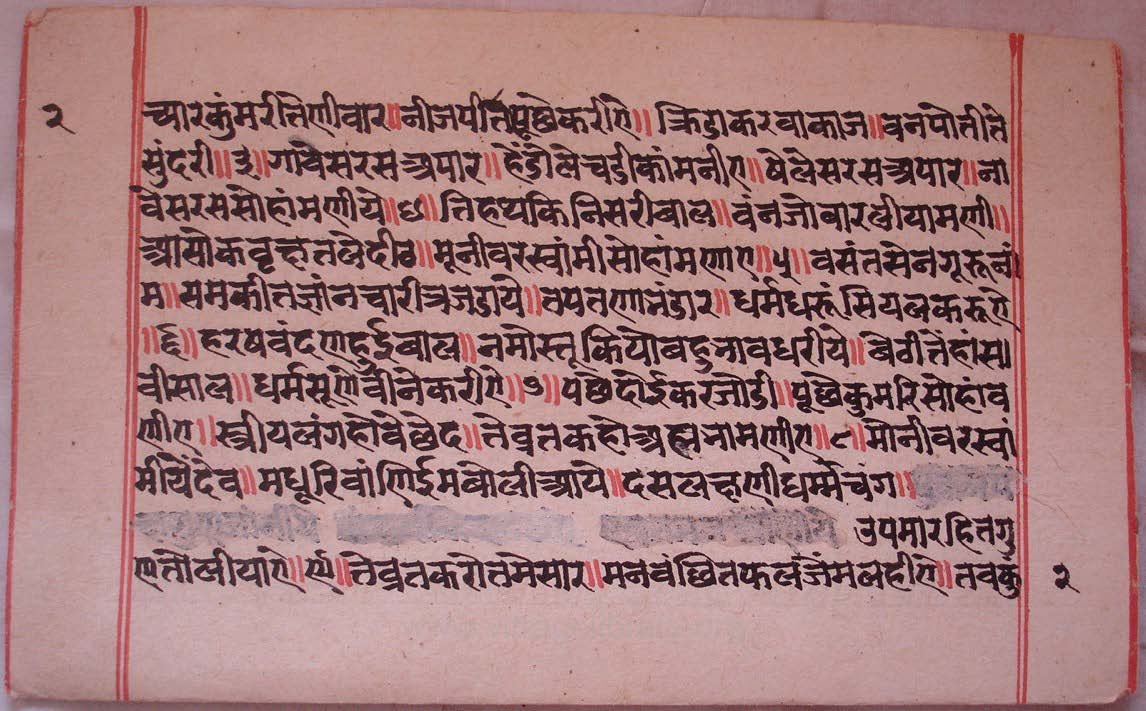 २
च्यारकुंमरीतेणीवार॥नीजपीतापूछेकरीए॥क्रिडाकरवाकाज॥वनपोतीते
सुंदरी॥३॥गावेसरसअपार॥हेंडोलेचडीकांमनीए॥षेलेसरसअपार॥ना
वेसरससोहांमणीये॥४॥तिहथकिनिसरीबाल॥वंनजोवारलीयामणी॥
आसोकवृक्षतलेदीठ॥मूनीवरस्वांमीसोहांमणाए॥५॥वसंतसेनगूरूनां
म॥समकीतज्ञांनचारीत्रजडाये॥तपतणाभंडार॥धर्मधरुंसियलकरुए
॥६॥हरषवंदणहुईबाल॥नमोस्तूकियोबहुभावधरीये॥बेठीतेहांसा
वीसाल॥धर्मसूणेवीनेकरीए॥७॥पछेदोईकरजोडी॥पूछेकुमरिसोहांव
णीए॥स्त्रीयलंगहोवेछेद॥तेव्रतकहोअह्मनामणीए॥८॥मोनीवरस्वां
मीयेंदेव॥मधूरिवांणिईमबोलीआये॥दसलक्षणीधर्मचंग॥
उपमारहितगु
णतोलीयाए॥९॥तेव्रतकरोतमेसार॥मनवंछितफलजंमलहीए॥तवकु
२